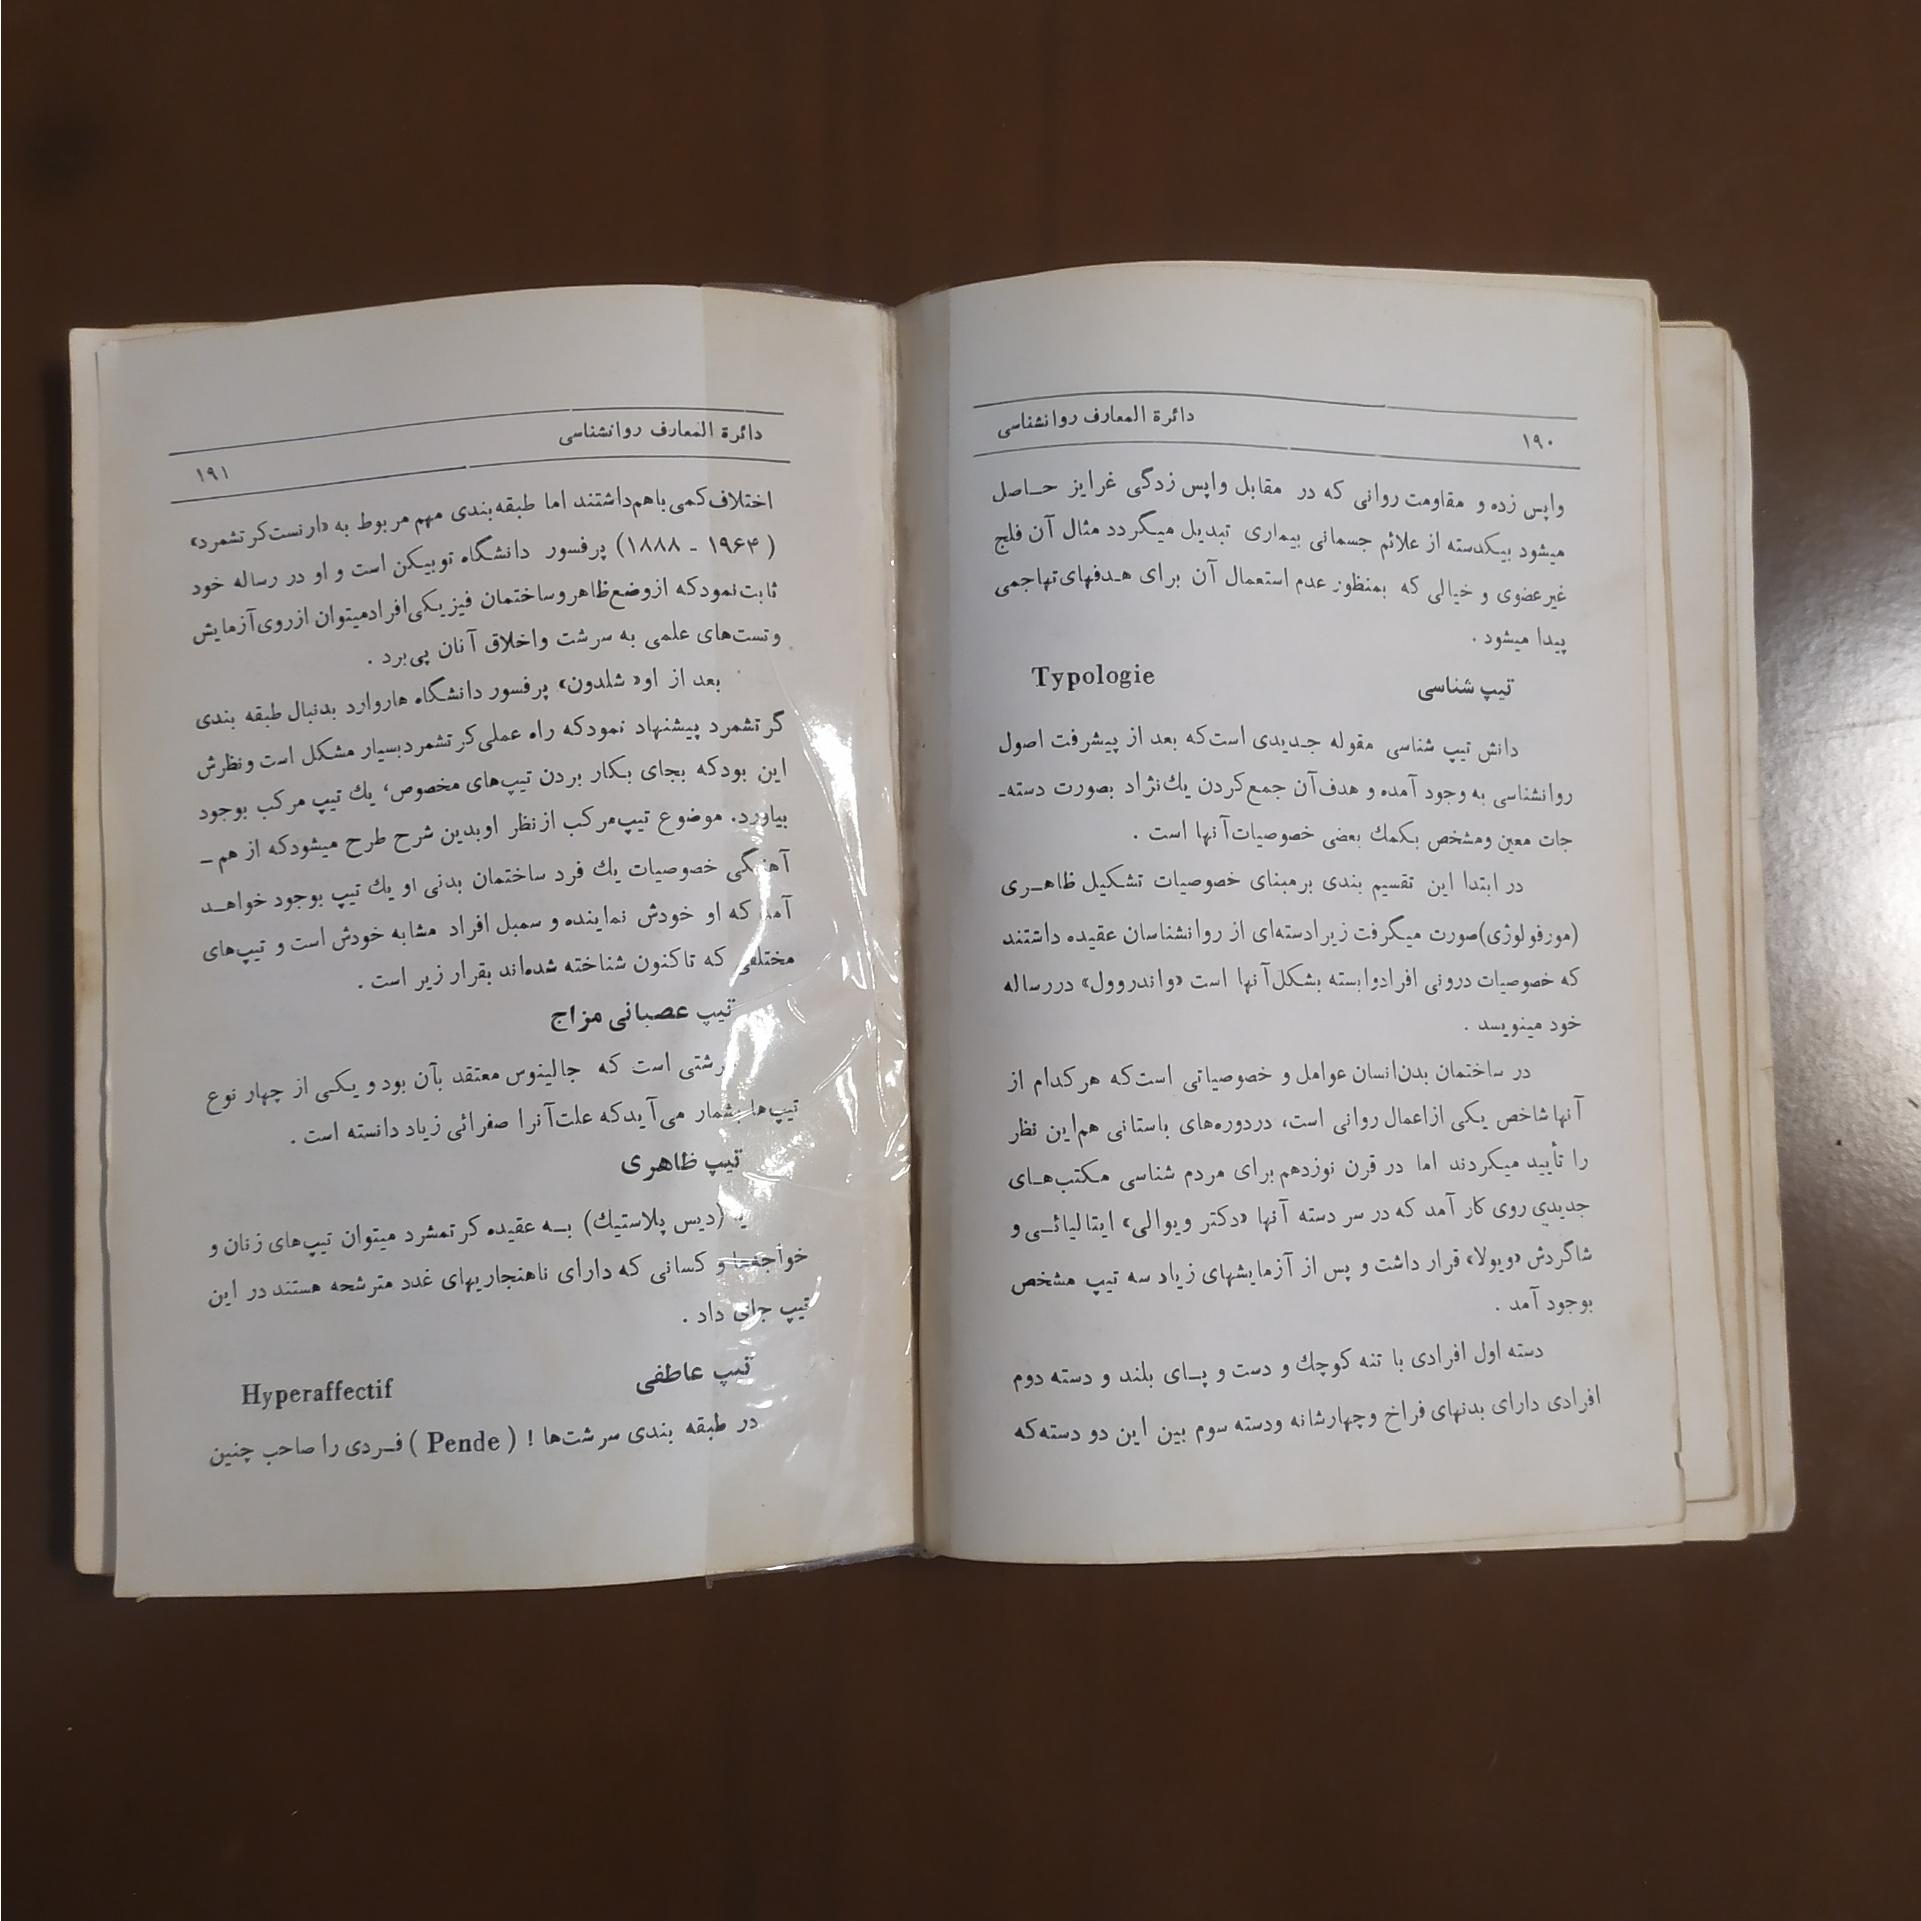 ۱۹۰
دائرة المعارف روانشناسی
واپس زده و مقاومت روانی که در مقابل واپس زدگی غرایز حـاصل
میشود بیکدسته از علائم جسمانی بیماری تبدیل میگردد مثال آن فلج
غیرعضوی و خیالی که بمنظور عدم استعمال آن برای هـدفهای تهاجمی
پیدا میشود .
تیپ شناسی Typologie
دانش تیپ شناسی مقوله جـدیدی است که بعد از پیشرفت اصول
روانشناسی به وجود آمده و هدف آن جمع کردن یك نژاد بصورت دسته‌ـ
جات معین ومشخص بکمك بعضی خصوصیات آنها است .
در ابتدا این تقسیم بندی برمبنای خصوصیات تشکیل ظاهـری
(مورفولوژی)صورت میگرفت زیرادسته‌ای از روانشناسان عقیده داشتند
که خصوصیات درونی افرادوابسته بشکل آنها است «واندروول» دررساله
خود مینویسد .
در ساختمان بدن انسان عوامل و خصوصیاتی است که هرکدام از
آنها شاخص یکی ازاعمال روانی است، دردوره‌های باستانی هم این نظر
را تأیید میکردند اما در قرن نوزدهم برای مردم شناسی مکتب‌هـای
جدیدی روی کار آمد که در سر دسته آنها «دکتر ویوالی» ایتالیائـی و
شاگردش «ویولا» قرار داشت و پس از آزمایشهای زیاد سه تیپ مشخص
بوجود آمد .
دسته اول افرادی با تنه کوچك و دست و پـای بلند و دسته دوم
افرادی دارای بدنهای فراخ وچهارشانه ودسته سوم بین این دو دسته که
دائرة المعارف روانشناسی
۱۹۱
اختلاف کمی باهم داشتند اما طبقه‌بندی مهم مربوط به «ارنست کرتشمرد»
( ۱۹۶۴ - ۱۸۸۸) پرفسور دانشگاه توبیکن است و او در رساله خود
ثابت نمود که ازوضع ظاهروساختمان فیزیکی افرادمیتوان ازروی آزمایش
وتست‌های علمی به سرشت واخلاق آنان پی‌برد .
بعد از او« شلدون» پرفسور دانشگاه هاروارد بدنبال طبقه بندی
کرتشمرد پیشنهاد نمودکه راه عملی کرتشمردبسیار مشکل است ونظرش
این بودکه بجای بکار بردن تیپ‌های مخصوص، یك تیپ مرکب بوجود
بیاورد. موضوع تیپ مرکب از نظر اوبدین شرح طرح میشودکه از هم ـ
آهنگی خصوصیات یك فرد ساختمان بدنی او یك تیپ بوجود خواهـد
آمد که او خودش نماینده و سمبل افراد مشابه خودش است و تیپ‌های
مختلفی که تاکنون شناخته شده‌اند بقرار زیر است .
تیپ عصبانی مزاج
سرشتی است که جالینوس معتقد بآن بود و یکی از چهار نوع
تیپ‌ها بشمار می‌آیدکه علت آنرا صفرائی زیاد دانسته است .
تیپ ظاهری
یا (دیس پلاستیك) بـه عقیده کرتمشرد میتوان تیپ‌های زنان و
خواجه‌ها و کسانی که دارای ناهنجاریهای غدد مترشحه هستند در این
تیپ جای داد .
تیپ عاطفی Hyperaffectif
در طبقه بندی سرشت‌ها ! ( Pende ) فـردی را صاحب چنین